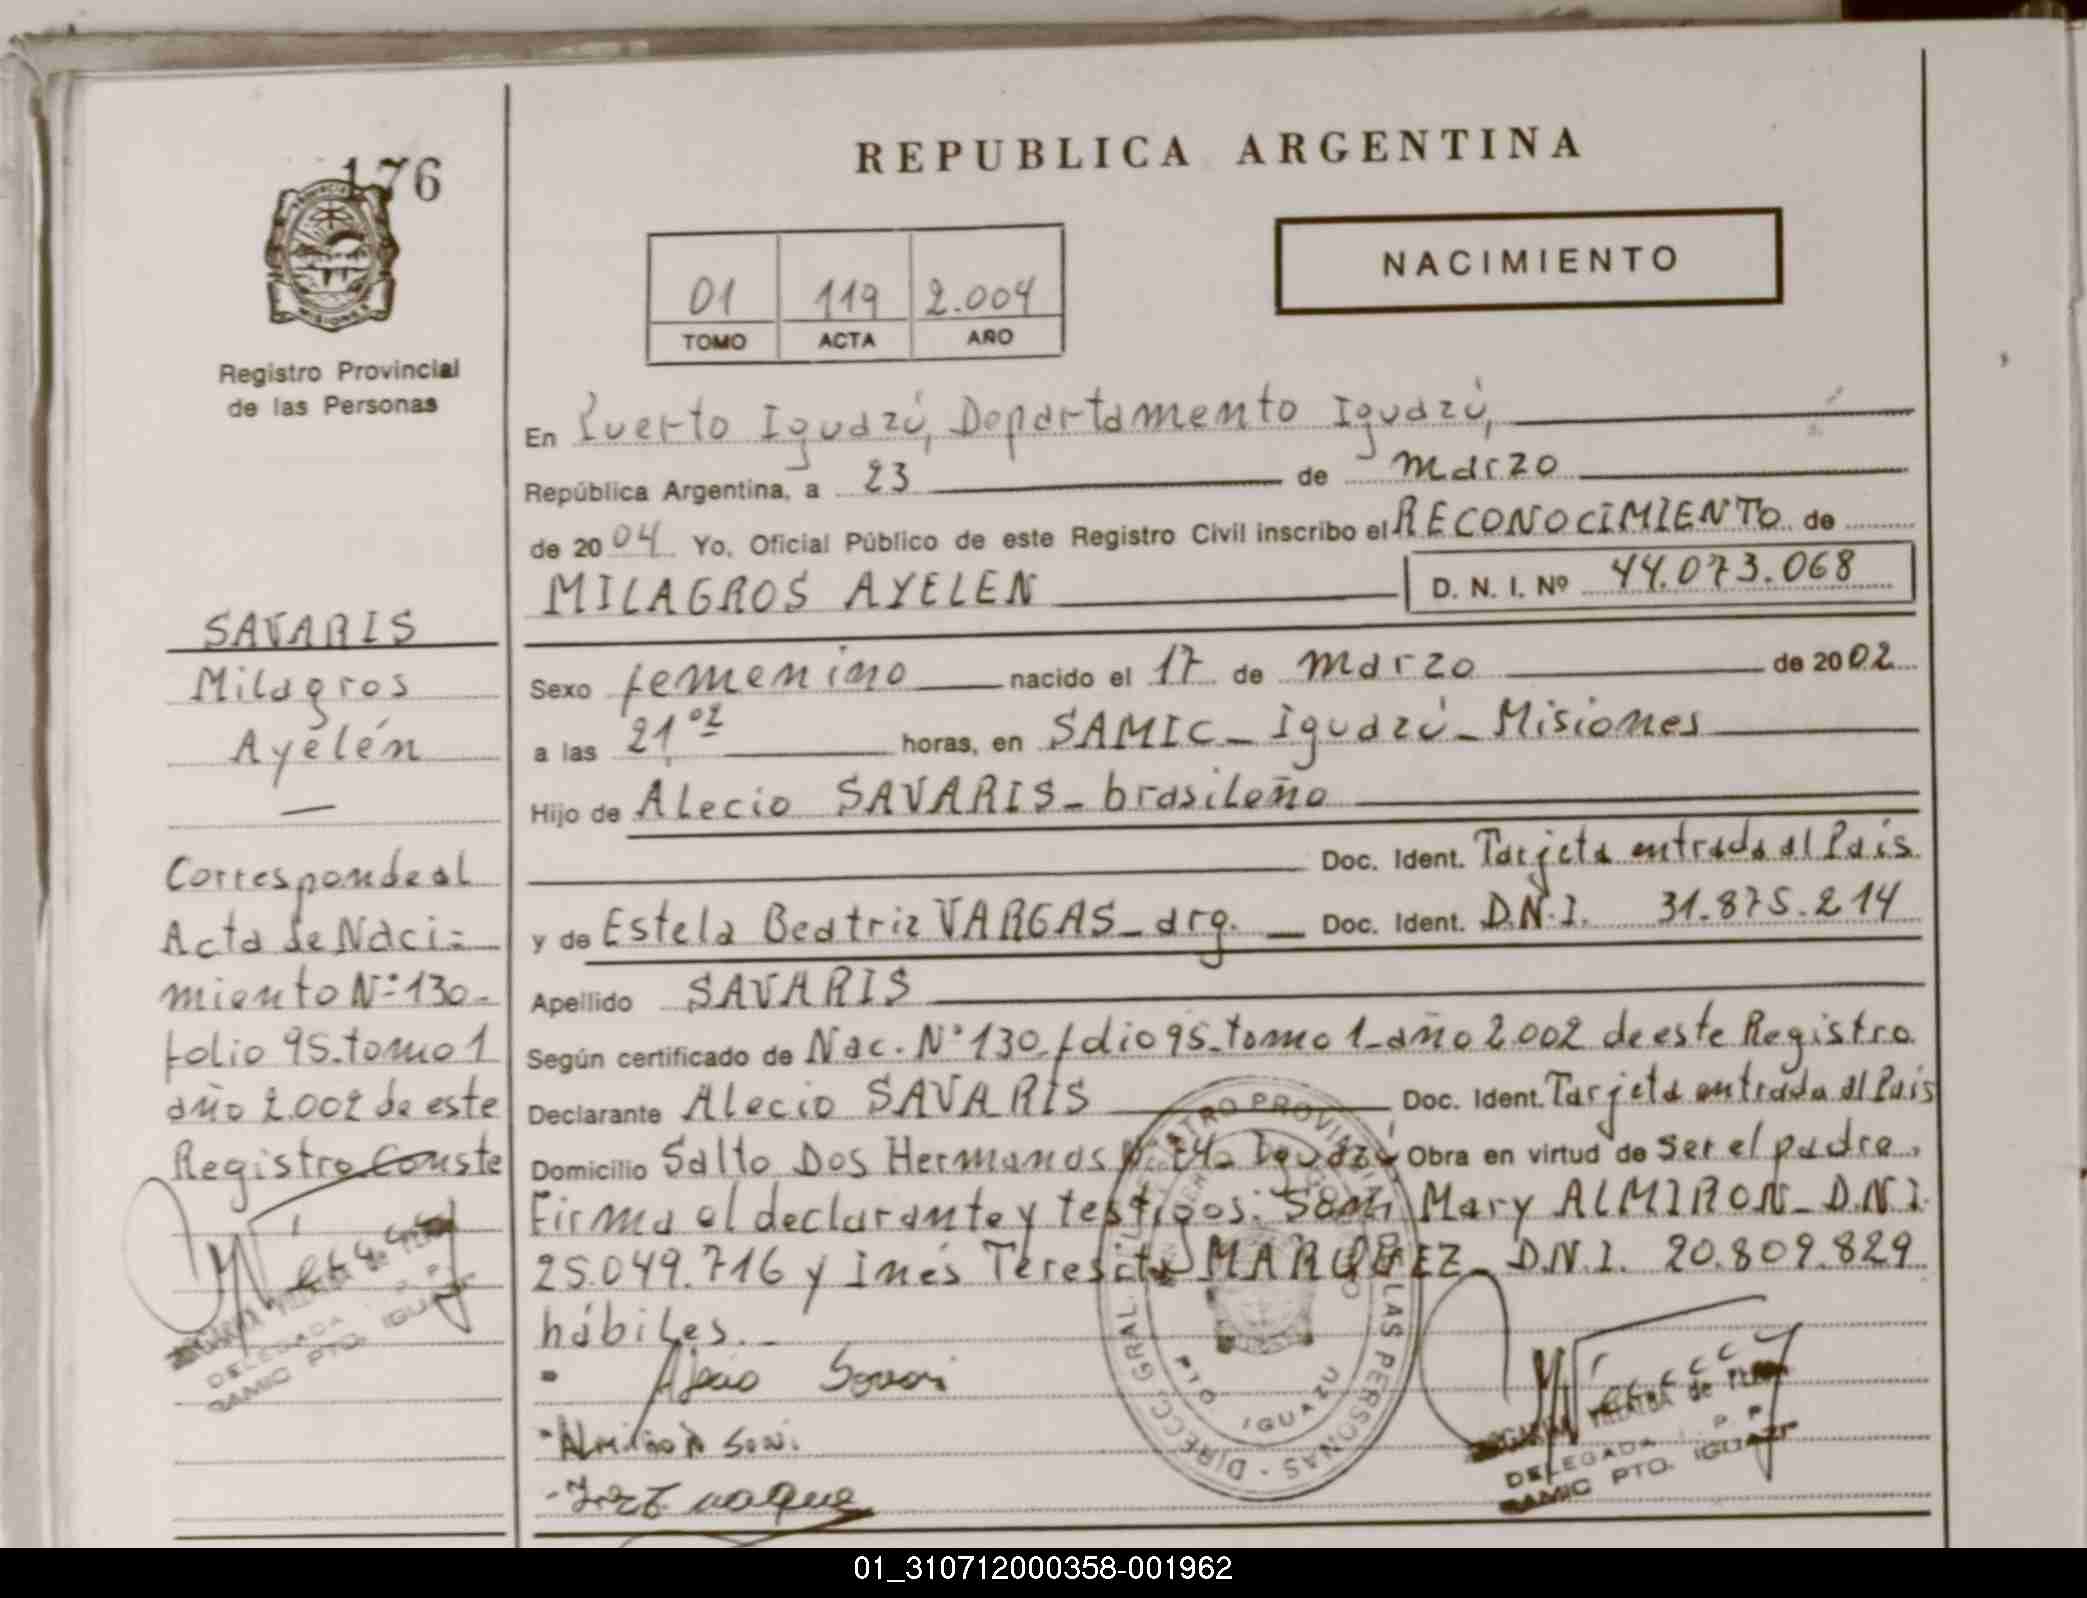 176
Registro Provincial
de las Personas
SAVARIS
Milagros
Ayelén
Corresponde al
Acta de Naci=
miento Nº 130-
folio 95-tomo 1
año 2.002 de este
Registro Conste
DELEGADA
SAMIC PTO. IGUAZU
REPUBLICA ARGENTINA
01 119 2.004
TOMO ACTA AÑO
NACIMIENTO
En Puerto Iguazú, Departamento Iguazú,
República Argentina, a 23 de marzo
de 2004 Yo, Oficial Público de este Registro Civil inscribo el RECONOCIMIENTO de
MILAGROS AYELEN D. N. I. Nº 44.073.068
Sexo femenino nacido el 17 de marzo de 2002
a las 21⁰² horas, en SAMIC - Iguazú - Misiones
Hijo de Alecio SAVARIS - brasileño
Doc. Ident. Tarjeta entrada al País
y de Estela Beatriz VARGAS - arg. - Doc. Ident. D.N.I. 31.875.214
Apellido SAVARIS
Según certificado de Nac. Nº 130 folio 95-tomo 1-año 2.002 de este Registro
Declarante Alecio SAVARIS Doc. Ident. Tarjeta entrada al País
Domicilio Salto Dos Hermanas Iguazú Obra en virtud de ser el padre.
Firma el declarante y testigos: Mary ALMIRON - D.N.I.
25.049.716 y Inés Teresita MARQUEZ D.N.I. 20.809.829
hábiles.-
DIRECC. GRAL. REGISTRO PROVINCIAL DE LAS PERSONAS
PTO IGUAZU
DELEGADA R. P. P.
SAMIC PTO. IGUAZU
01_310712000358-001962